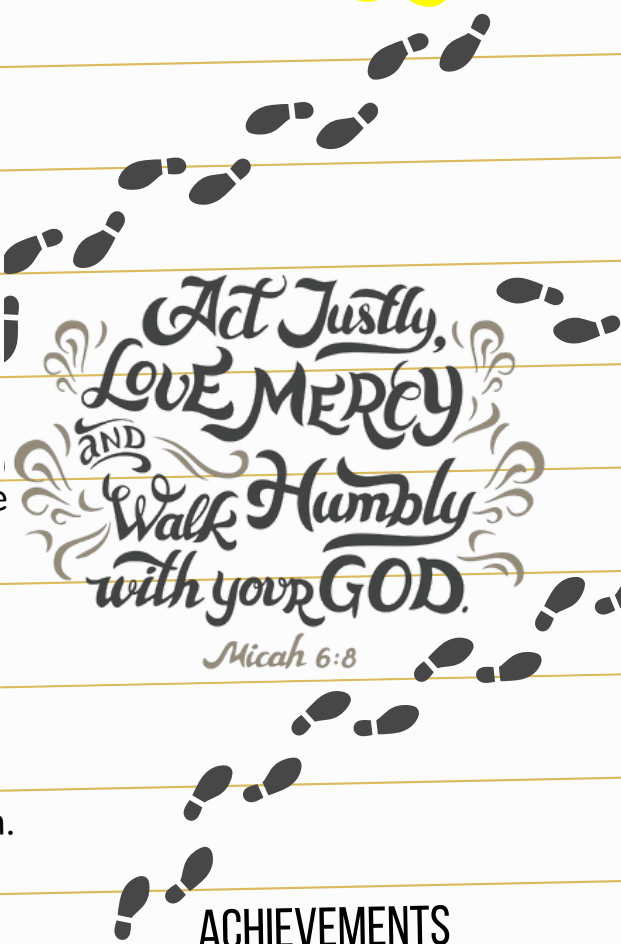 Act Justly,
LOVE MERCY
AND
Walk Humbly
with your GOD.
Micah 6:8
ACHIEVEMENTS